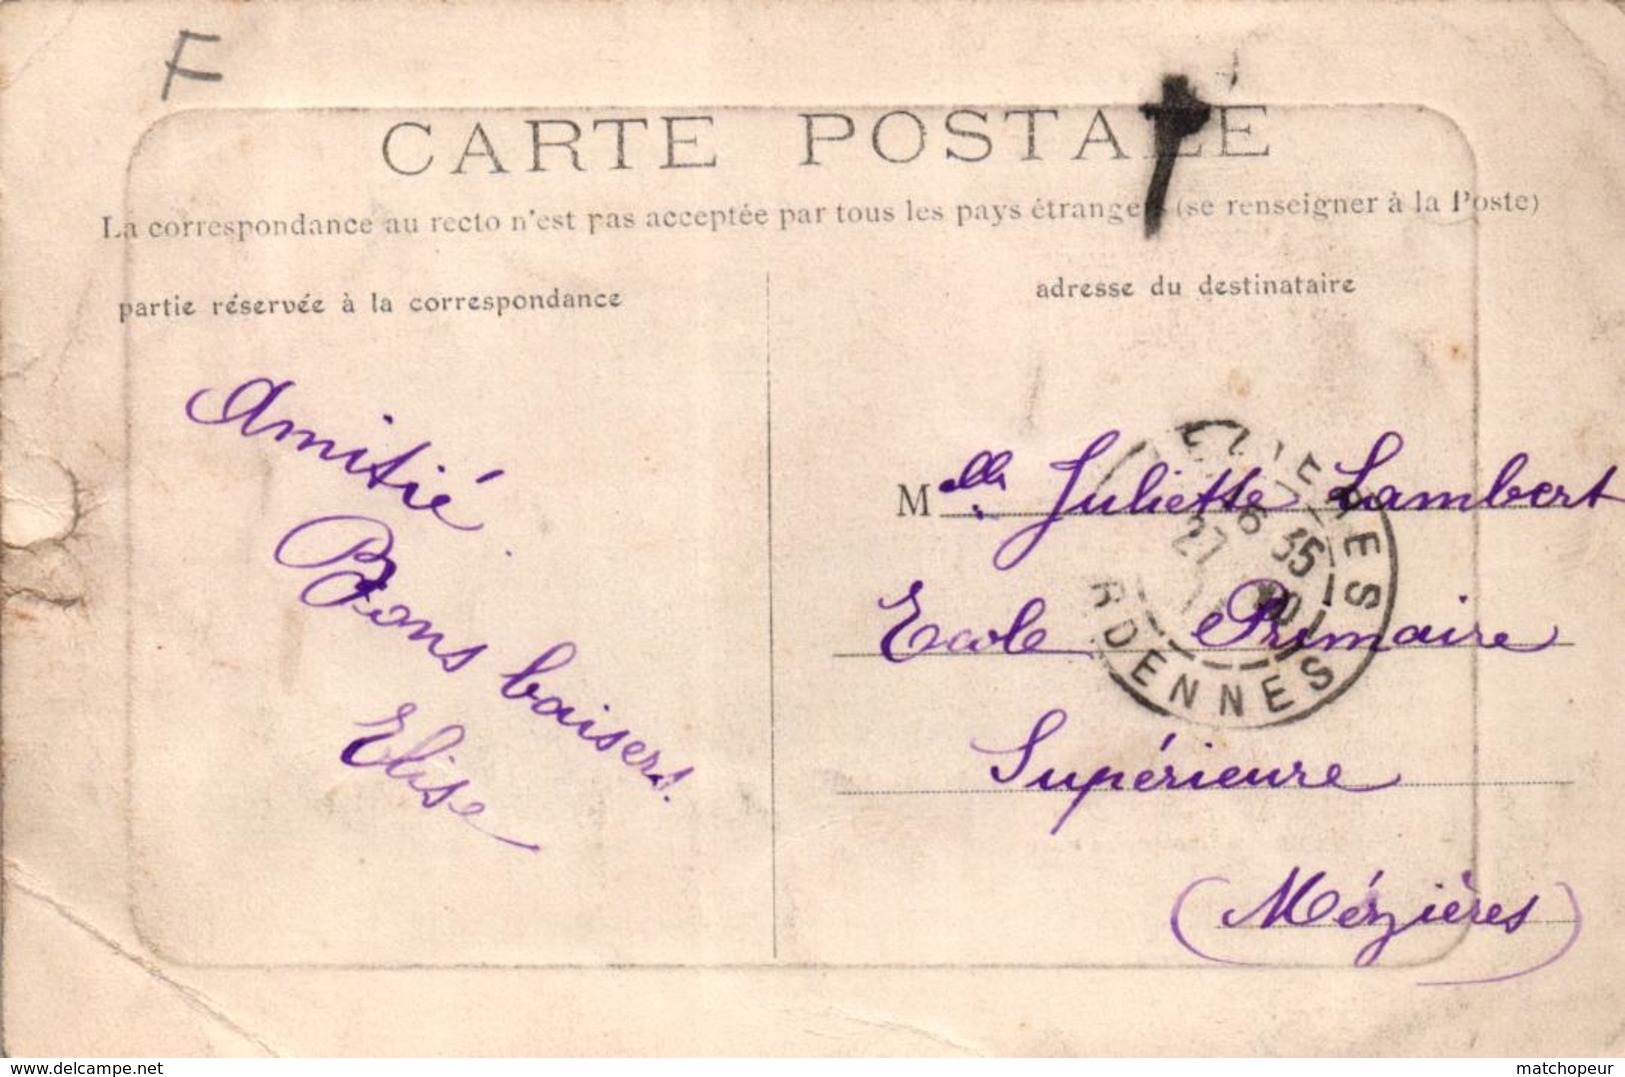 F
CARTE POSTALE
La correspondance au recto n'est pas acceptée par tous les pays étrangers (se renseigner à la Poste)
partie réservée à la correspondance
adresse du destinataire
Amitié
Bons baisers.
Elise
Melle. Juliette Lambert
Ecole Primaire
Supérieure
(Mézières)
6 35
27
ARDENNES
delcampe.net
matchopeur